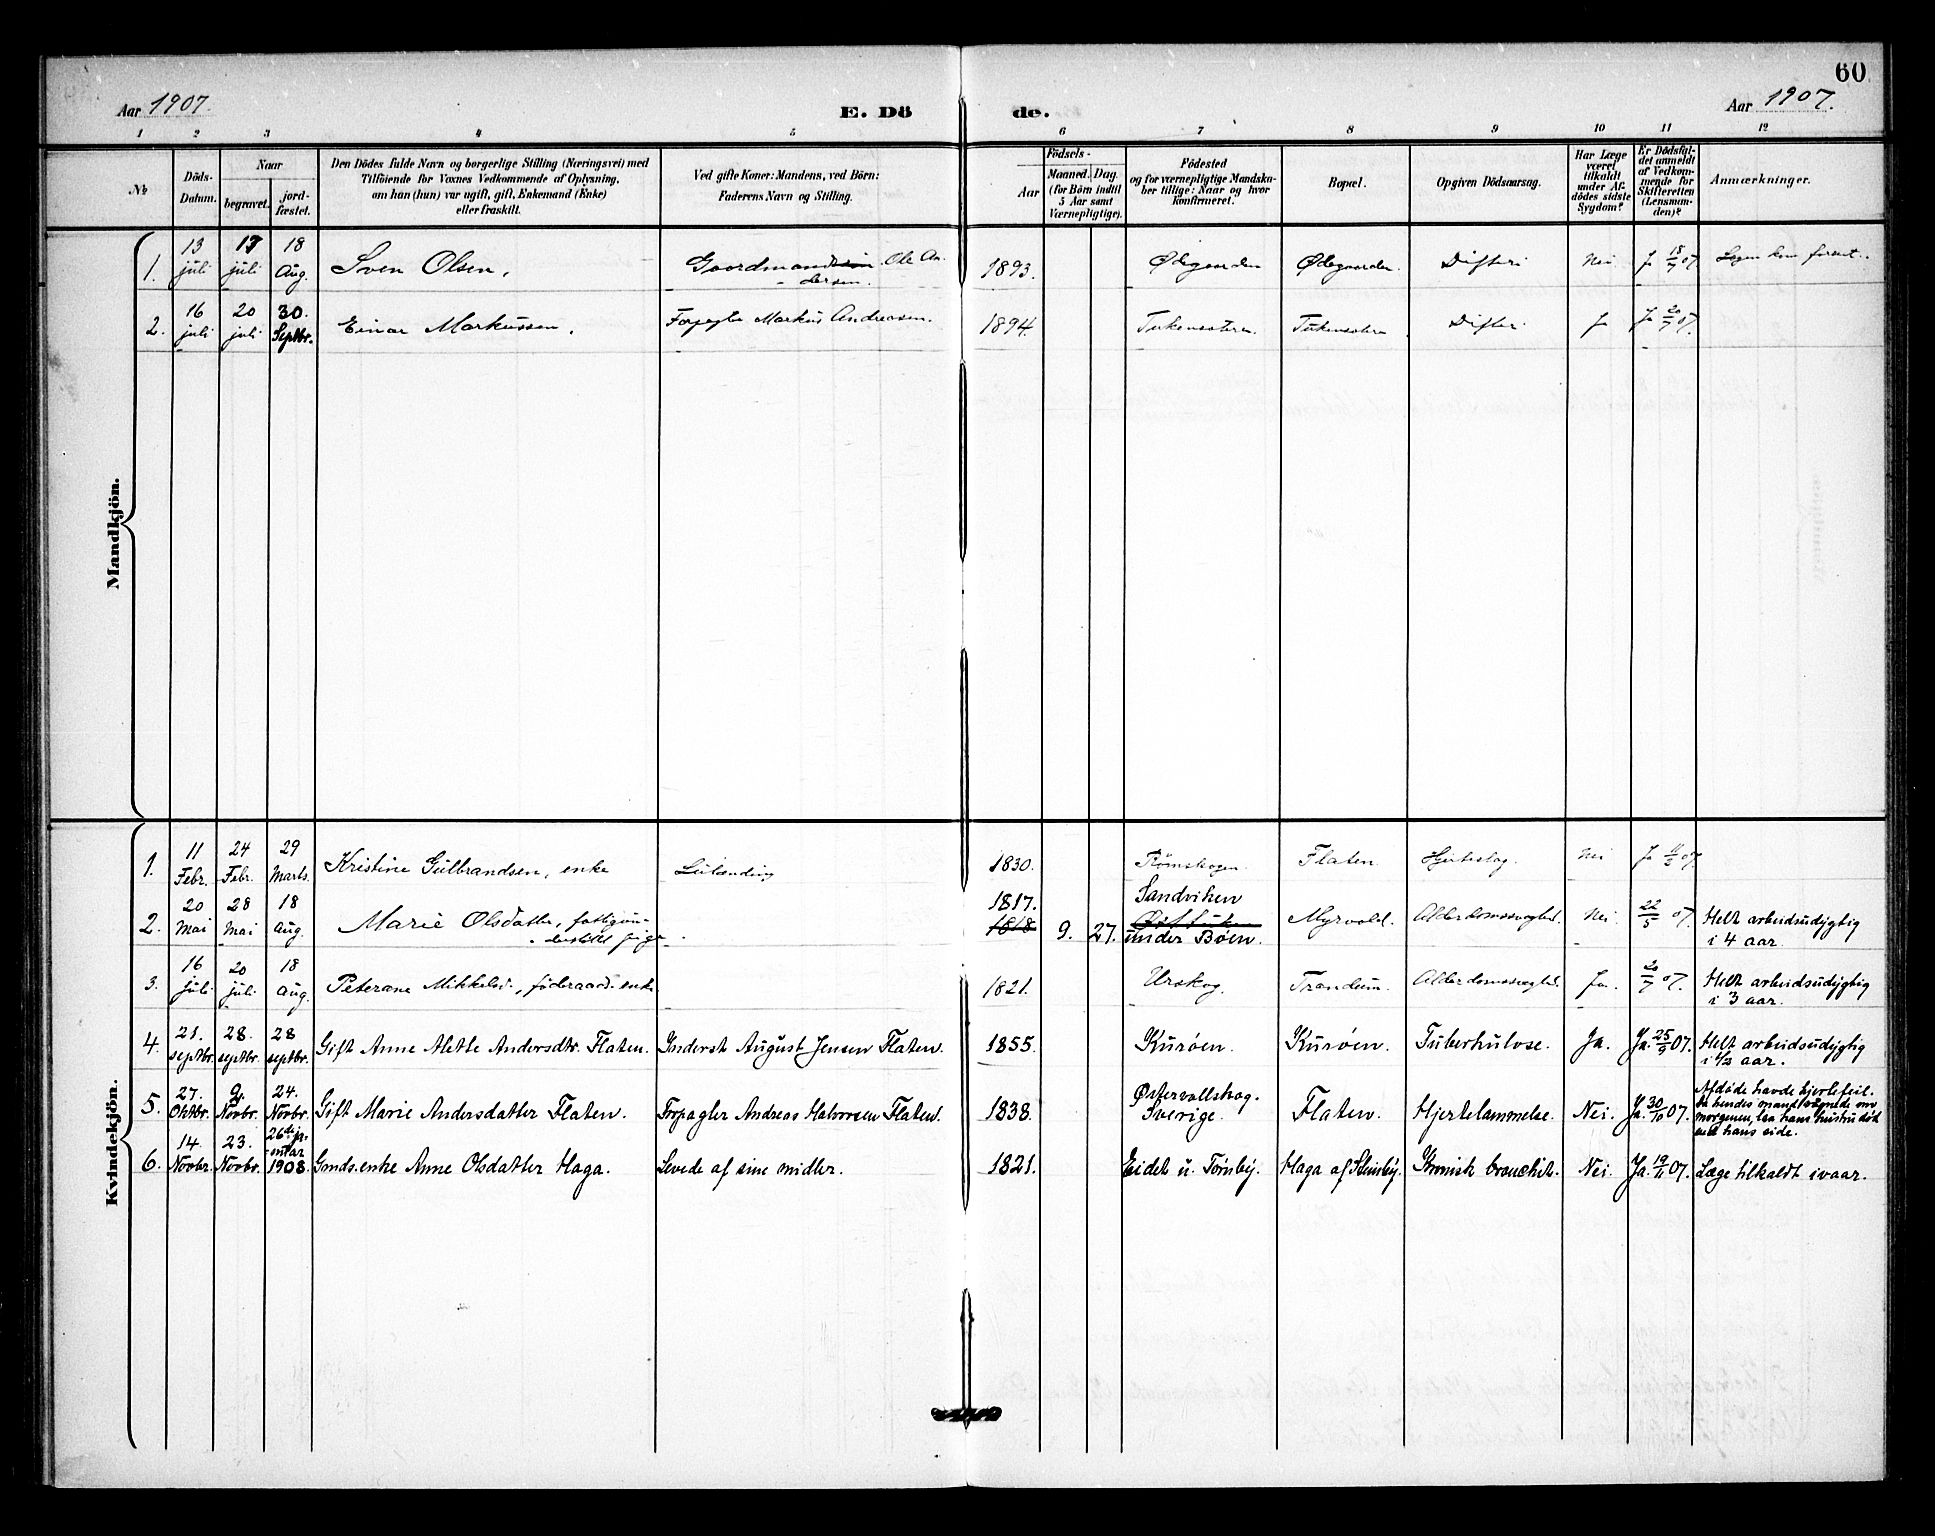 60
Aar 1907. E. Dö de. Aar 1907.
1 2 3 4 5 6 7 8 9 10 11 12
No
Döds-
Datum.
Naar
begravet.
jord-
fæstet.
Den Dödes fulde Navn og borgerlige Stilling (Næringsvei) med
Tilföiende for Voxnes Vedkommende af Oplysning,
om han (hun) var ugift, gift, Enkemand (Enke)
eller fraskilt.
Ved gifte Koner: Mandens, ved Börn:
Faderens Navn og Stilling.
Födsels-
Aar
Maaned. Dag.
(for Börn indtil
5 Aar samt
Værnepligtige).
Födested
og for værnepligtige Mandska-
ber tillige: Naar og hvor
konfirmeret.
Bopæl.
Opgiven Dödsaarsag.
Har Læge
været
tilkaldt
under Af-
dödes sidste
Sygdom?
Er Dödsfal-
det anmeldt
af Vedkom-
mende for
Skifteretten
(Lensman-
den)?
Anmærkninger.
Mandkjön.
1. 13 juli 17 juli 18 Aug. Sven Olsen. Gaardmand Ole An-
dersen. 1893. Ødegaarden Ødegaarden Difteri Nei Ja 18/7 07.
2. 16 juli 20 juli 30. Septbr. Einar Markussen. Forpagter Markus Andreasen. 1894. Difteri Ja Ja 20/7 07.
Kvindekjön.
1. 11 Febr. 24 Febr. 29 Marts. Kristine Gulbrandsen, enke 1830. Rømskogen. Flaten. Hjerteslag. Nei Ja 11/2 07.
2. 20 Mai 28 Mai 18 Aug. Marie Olsdatter, fattigun-
derstøttet pige. 1817. 1818 9. 27. Sandviken
under Bøen. Myrvold. Alderdomssvaghed. Nei 22/5 07. Helt arbeidsudygtig
i 4 aar.
3. 16 juli 20 juli 18 Aug. Peterane Mikkelsd., føderaadsenke 1821. Urskog. Trandum. Alderdomssvaghed. Ja. 20/7 07. Helt arbeidsudygtig
i 3 aar.
4. 21. septbr. 28. septbr. 28 septbr. Gift Anne Alette Andersdtr. Flaten. Inderst August Jensen Flaten. 1855. Kurøen. Kurøen. Tuberkulose. Ja. Ja. 25/9 07. Helt arbeidsudygtig
i 1/2 aar.
5. 27. Oktbr. 9. Novbr. 24. Novbr. Gift Marie Andersdatter Flaten. Forpagter Andreas Halvorsen Flaten. 1838. Østervallskog.
Sverige. Flaten. Hjertelammelse. Nei. Ja. 30/10 07. Afdøde havde hjertefeil.
Da hendes mand vaagnede om
morgenen, laa hans hustru død
ved hans side.
6. 14. Novbr. 23. Novbr. 26de januar 1908. Gaards.enke Anne Olsdatter Haga. Levede af sine midler. 1821. Eidet u. Tørnby. Haga af Stenby. Kronisk bronchit. Nei. Ja. 19/11 07. Læge tilkaldt ivaar.